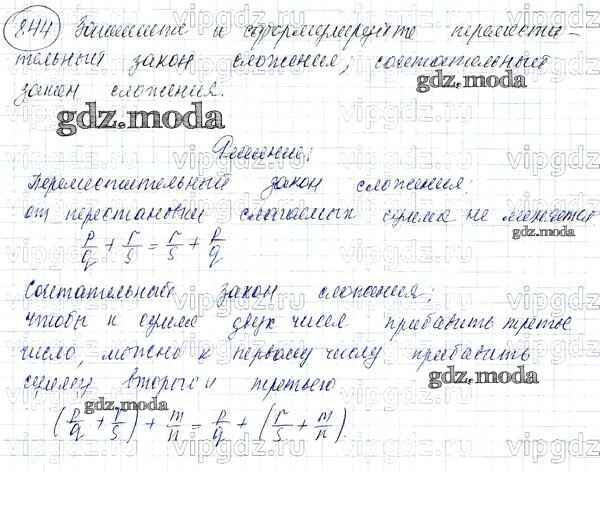 844 Запишите и сформулируйте перемести-
тельный закон сложения, сочетательный
закон сложения.
gdz.moda
gdz.moda
Решение:
Переместительный закон сложения:
от перестановки слагаемых сумма не меняется
gdz.moda
p/q + r/s = r/s + p/q
Сочетательный закон сложения:
чтобы к сумме двух чисел прибавить третье
число, можно к первому числу прибавить
сумму второго и третьего
gdz.moda
gdz.moda
(p/q + r/s) + m/n = p/q + (r/s + m/n).
vipgdz